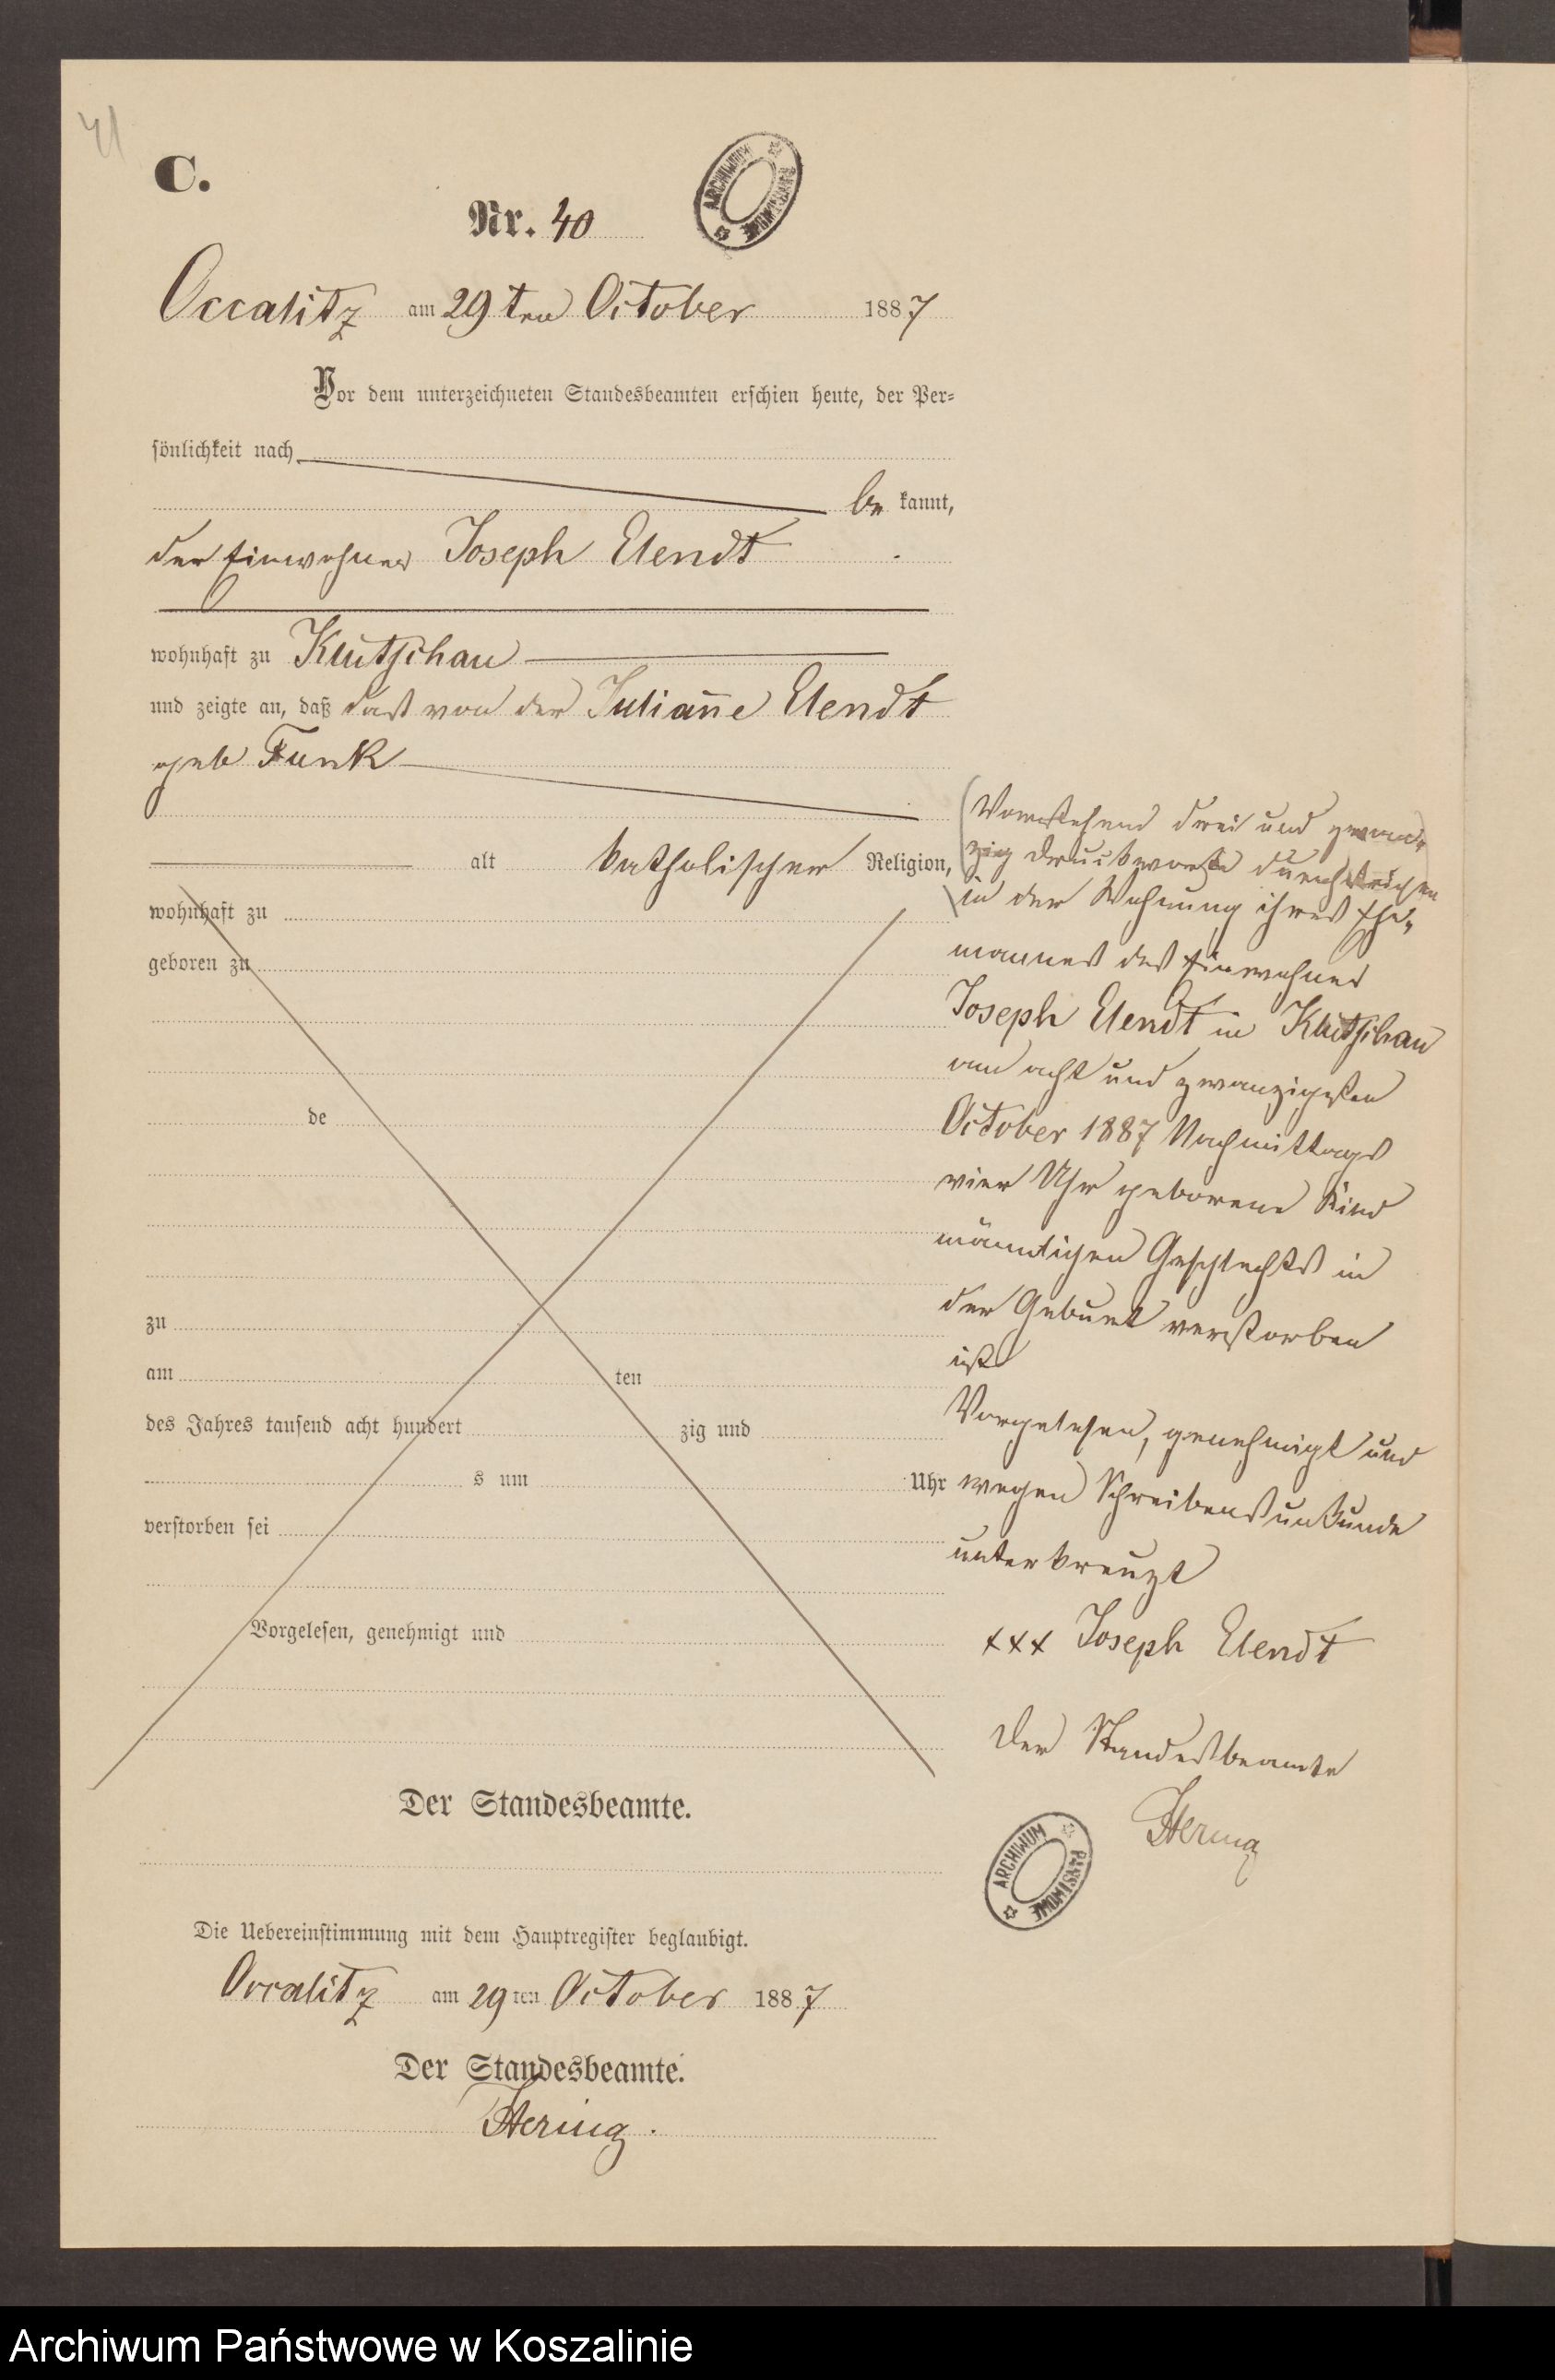 41
C.
Nr. 40
ARCHIWUM PAŃSTWOWE
Occalitz am 29ten October 1887
Vor dem unterzeichneten Standesbeamten erschien heute, der Per-
sönlichkeit nach
be kannt,
der Einwohner Joseph Elendt
wohnhaft zu Klutschau
und zeigte an, daß das von der Julian̄e Elendt
geb Funk
alt katholischer Religion,
wohnhaft zu
geboren zu
de
zu
am ten
des Jahres tausend acht hundert zig und
s um Uhr
verstorben sei
Vorgelesen, genehmigt und
Der Standesbeamte.
(Vorstehend drei und zwan-
zig Druckworte durchstrichen)
in der Wohnung ihres Ehe-
mannes des Einwohner
Joseph Elendt in Klutschau
am acht und zwanzigsten
October 1887 Nachmittags
vier Uhr geborene Kind
mänlichen Geschlechts in
der Geburt verstorben
ist
Vorgelesen, genehmigt und
wegen Schreibensunkunde
unterkreuzt
xxx Joseph Elendt
Der Standesbeamte
Hering
ARCHIWUM PAŃSTWOWE
Die Uebereinstimmung mit dem Hauptregister beglaubigt.
Occalitz am 29ten October 1887
Der Standesbeamte.
Hering.
Archiwum Państwowe w Koszalinie